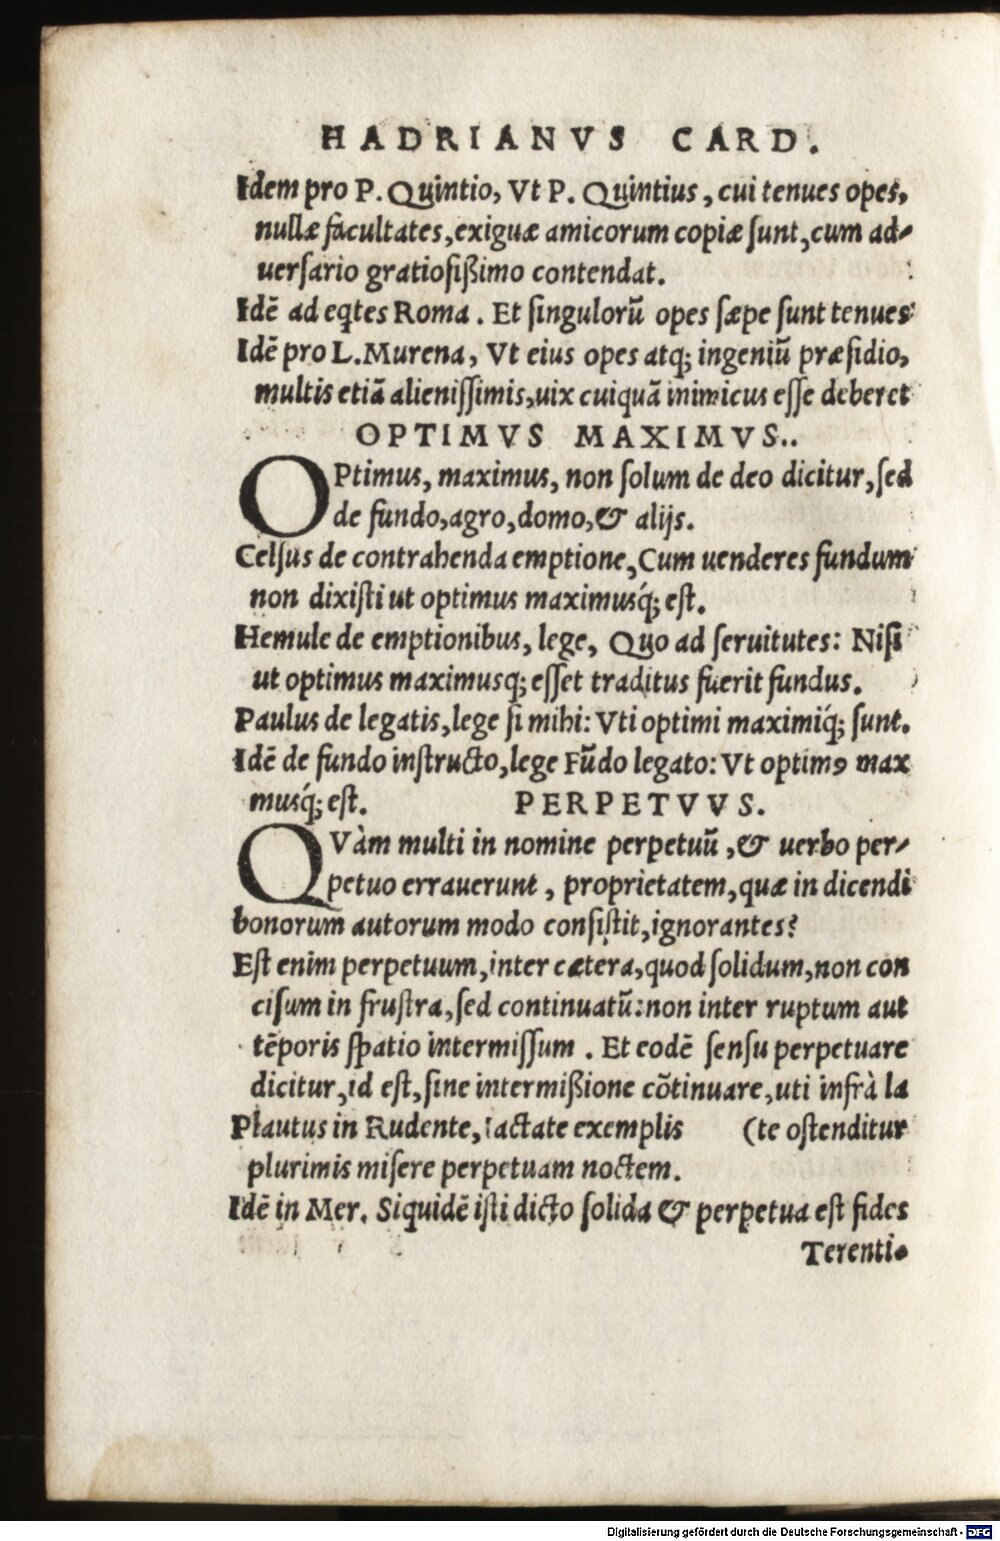 HADRIANVS CARD.
Idem pro P. Quintio, Vt P. Quintius, cui tenues opes,
nullæ facultates, exiguæ amicorum copiæ sunt, cum ad-
uersario gratiosißimo contendat.
Idē ad eqtes Roma. Et singulorū opes sæpe sunt tenues
Idē pro L. Murena, Vt eius opes atq; ingeniū præsidio,
multis etiā alienissimis, uix cuiquā inimicus esse deberet
OPTIMVS MAXIMVS..
OPtimus, maximus, non solum de deo dicitur, sed
de fundo, agro, domo, & alijs.
Celsus de contrahenda emptione, Cum uenderes fundum
non dixisti ut optimus maximusq́; est.
Hemule de emptionibus, lege, Quo ad seruitutes: Nisi
ut optimus maximusq; esset traditus fuerit fundus.
Paulus de legatis, lege si mihi: Vti optimi maximiq́; sunt.
Idē de fundo instructo, lege Fūdo legato: Vt optimꝰ max
musq́; est. PERPETVVS.
QVàm multi in nomine perpetuū, & uerbo per-
petuo errauerunt, proprietatem, quæ in dicendi
bonorum autorum modo consistit, ignorantes?
Est enim perpetuum, inter cætera, quod solidum, non con
cisum in frustra, sed continuatū: non inter ruptum aut
tēporis spatio intermissum. Et eodē sensu perpetuare
dicitur, id est, sine intermißione cōtinuare, uti infrà la
Plautus in Rudente, Iactate exemplis (te ostenditur
plurimis misere perpetuam noctem.
Idē in Mer. Siquidē isti dicto solida & perpetua est fides
Terenti•
Digitalisierung gefördert durch die Deutsche Forschungsgemeinschaft - DFG